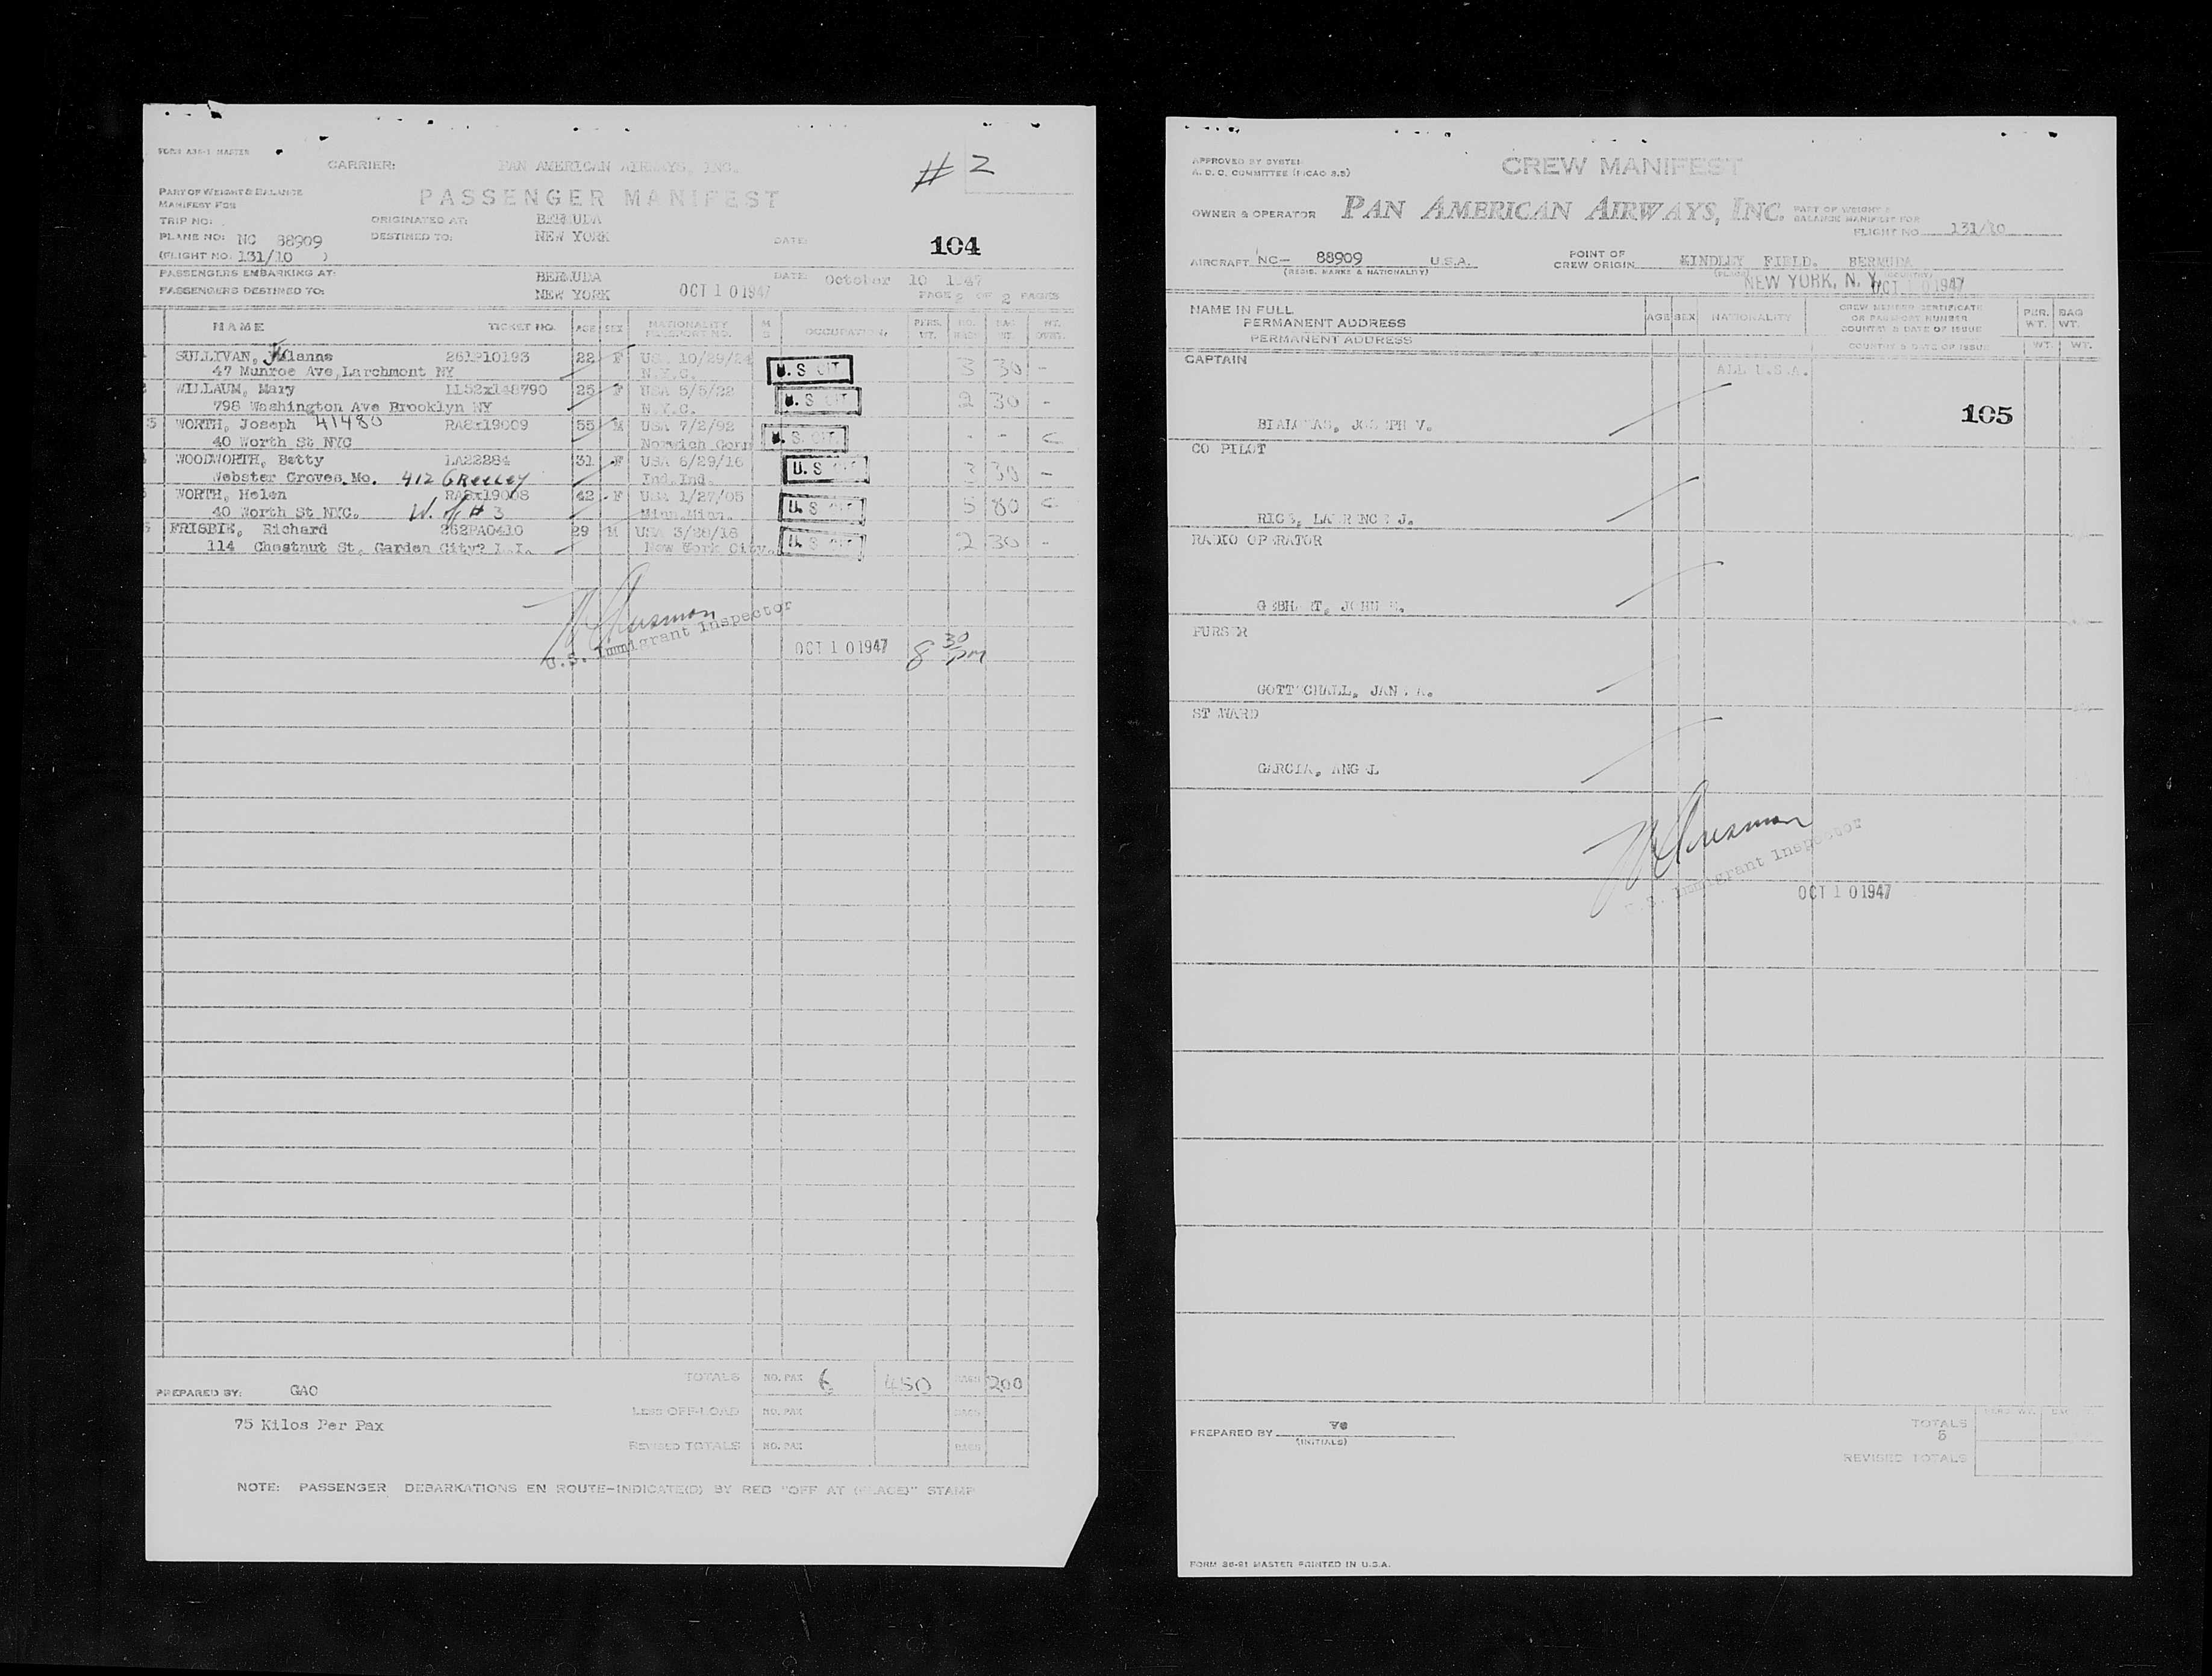 FORM A36-1 MASTER
CARRIER: PAN AMERICAN AIRWAYS, INC.
# 2
PART OF WEIGHT & BALANCE
MANIFEST FOR
PASSENGER MANIFEST
TRIP NO: ORIGINATED AT: BERMUDA
PLANE NO: NC 88909 DESTINED TO: NEW YORK DATE: 104
(FLIGHT NO. 131/10 )
PASSENGERS EMBARKING AT: BERMUDA DATE: October 10 1947
PASSENGERS DESTINED TO: NEW YORK OCT 10 1947 PAGE 2 OF 2 PAGES
NAME TICKET NO. AGE SEX NATIONALITY OCCUPATION PERS. WT.
SULLIVAN, 261P10193 22 F US. 10/29/24 U.S CIT. 3 30 -
47 Munroe Ave, Larchmont NY N.Y.C.
WILLAUM, Mary 1152x148790 25 F USA 5/5/22 U.S CIT. 2 30 -
798 Washington Ave Brooklyn NY N.Y.C.
WORTH, Joseph 41480 RA8x19009 55 M USA 7/2/92 U.S. CIT. - -
40 Worth St NYC Norwich Conn
WOODWORTH, Betty LA22284 31 F USA 6/29/16 U.S CIT 3 30 -
Webster Groves Mo. 412 GREELEY Ind. Ind.
WORTH, Helen RA8x19008 42 F USA 1/27/05 U.S CIT 5 80
40 Worth St NYC. W. of # 3 Minn. Minn.
FRISBIE, Richard 262PA0410 29 M USA 3/28/18 U.S CIT 2 30 -
114 Chestnut St. Garden City? L.I. New York City.
U.S. Immigrant Inspector
OCT 10 1947 8 30 pm
TOTALS NO. PAX 6 450 200
PREPARED BY: GAO
LESS OFF-LOAD NO. PAX
75 Kilos Per Pax
REVISED TOTALS NO. PAX
NOTE: PASSENGER DEBARKATIONS EN ROUTE-INDICATE(D) BY RED "OFF AT (PLACE)" STAMP
APPROVED BY SYSTEM
A. D. C. COMMITTEE
CREW MANIFEST
OWNER & OPERATOR PAN AMERICAN AIRWAYS, INC. PART OF WEIGHT &
BALANCE MANIFEST FOR
FLIGHT NO. 131/10
AIRCRAFT NC- 88909 U.S.A. POINT OF
CREW ORIGIN KINDLEY FIELD. BERMUDA
(REGIS. MARKS & NATIONALITY) (PLACE) (COUNTRY)
NEW YORK, N. Y. OCT 10 1947
NAME IN FULL
PERMANENT ADDRESS AGE SEX NATIONALITY CREW MEMBER CERTIFICATE
OR PASSPORT NUMBER
COUNTRY & DATE OF ISSUE PER. WT. BAG WT.
PERMANENT ADDRESS COUNTRY & DATE OF ISSUE WT. WT.
CAPTAIN ALL U.S.A.
105
JOSEPH V.
CO PILOT
LAWRENCE J.
RADIO OPERATOR
PURSER
STEWARD
GARCIA, ANGEL
U.S. Immigrant Inspector
OCT 10 1947
PREPARED BY
(INITIALS)
TOTALS
5
REVISED TOTALS
FORM 36-21 MASTER PRINTED IN U.S.A.